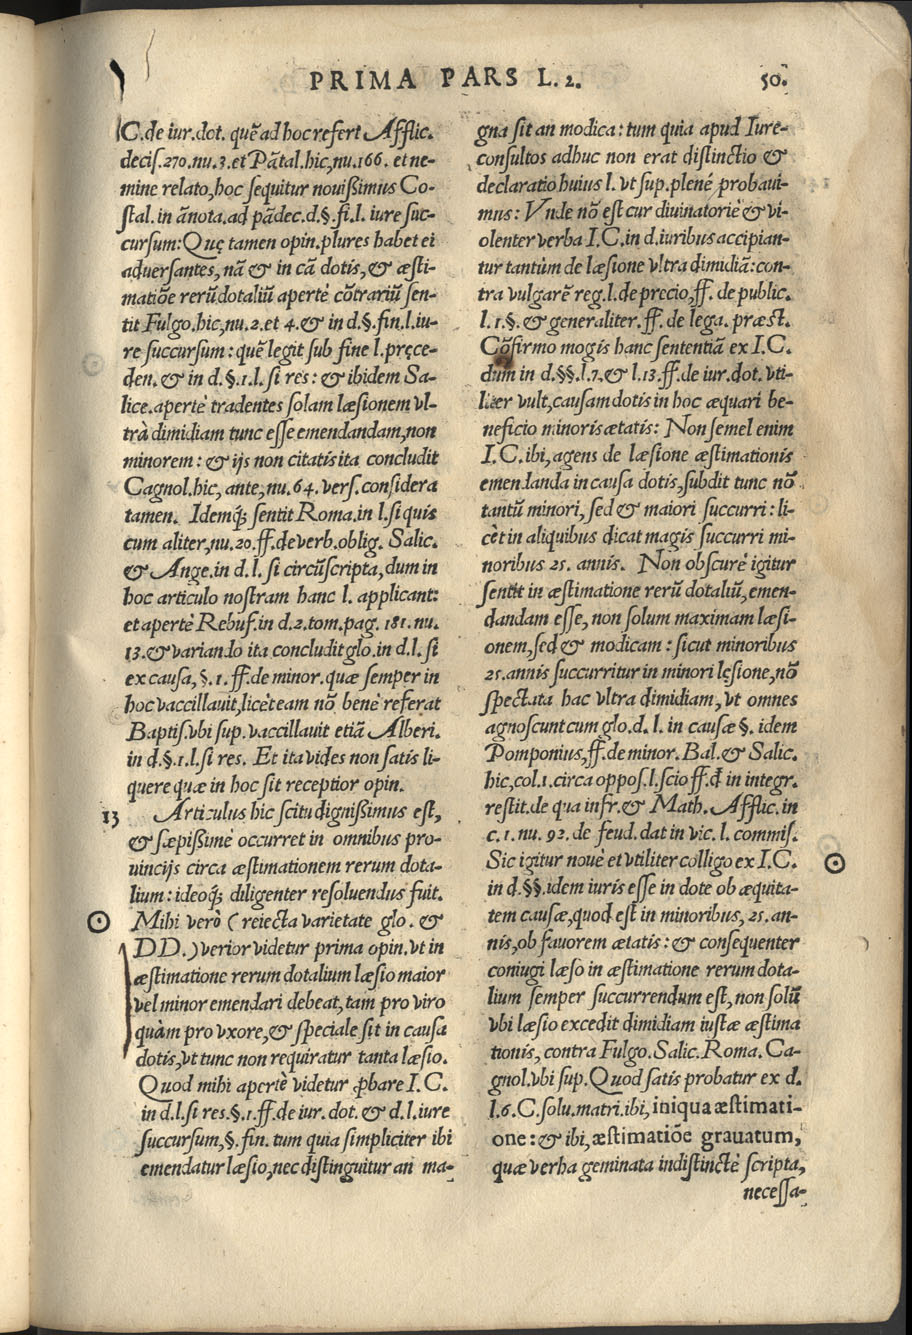 PRIMA PARS L. 2.
50.
C. de iur. dot. quẽ ad hoc refert Afflic.
decis. 270. nu. 3. et Pãtal. hic, nu. 166. et ne-
mine relato, hoc sequitur nouißimus Co-
stal. in ãnota. ad pãdec. d. §. fi. l. iure suc-
cursum: Quę tamen opin. plures habet ei
aduersantes, nã & in cã dotis, & æsti-
matiõe rerũ dotaliũ apertè cõtrariũ sen-
tit Fulgo. hic, nu. 2. et 4. & in d. §. fin. l. iu-
re succursum: quẽ legit sub fine l. pręce-
den. & in d. §. 1. l. si res: & ibidem Sa-
lice. apertè tradentes solam læsionem vl-
trà dimidiam tunc esse emendandam, non
minorem: & ijs non citatis ita concludit
Cagnol. hic, ante, nu. 64. vers. considera
tamen. Idemq́; sentit Roma. in l. si quis
cum aliter, nu. 20. ff. de verb. oblig. Salic.
& Ange. in d. l. si circũscripta, dum in
hoc articulo nostram hanc l. applicant:
et apertè Rebuf. in d. 2. tom. pag. 181. nu.
13. & variando ita concludit glo. in d. l. si
ex causa, §. 1. ff. de minor. quæ semper in
hoc vaccillauit, licèt eam nõ benè referat
Baptis. vbi sup. vaccillauit etiã Alberi.
in d. §. 1. l. si res. Et ita vides non satis li-
quere quæ in hoc sit receptior opin.
13 Articulus hic scitu dignißimus est,
& sæpißimè occurret in omnibus pro-
uincijs circa æstimationem rerum dota-
lium: ideoq́; diligenter resoluendus fuit.
Mihi verò (reiecta varietate glo. &
DD.) verior videtur prima opin. vt in
æstimatione rerum dotalium læsio maior
vel minor emendari debeat, tam pro viro
quàm pro vxore, & speciale sit in causa
dotis, vt tunc non requiratur tanta læsio.
Quod mihi apertè videtur ꝓbare I. C.
in d. l. si res. §. 1. ff. de iur. dot. & d. l. iure
succursum, §. fin. tum quia simpliciter ibi
emendatur læsio, nec distinguitur an ma-
gna sit an modica: tum quia apud Iure-
consultos adhuc non erat distinctio &
declaratio huius l. vt sup. plenè probaui-
mus: Vnde nõ est cur diuinatoriè & vi-
olenter verba I. C. in d. iuribus accipian-
tur tantùm de læsione vltra dimidiã: con-
tra vulgarẽ reg. l. de precio, ff. de public.
l. 1. §. & generaliter. ff. de lega. præst.
Cõfirmo mogis hanc sententiã ex I. C.
dum in d. §§. l. 7. & l. 13. ff. de iur. dot. vti-
liter vult, causam dotis in hoc æquari be-
neficio minoris ætatis: Non semel enim
I. C. ibi, agens de læsione æstimationis
emendanda in causa dotis, subdit tunc nõ
tantũ minori, sed & maiori succurri: li-
cèt in aliquibus dicat magis succurri mi-
noribus 25. annis. Non obscurè igitur
sentit in æstimatione rerũ dotaliũ, emen-
dandam esse, non solum maximam læsi-
onem, sed & modicam: sicut minoribus
25. annis succurritur in minori lęsione, nõ
spectata hac vltra dimidiam, vt omnes
agnoscunt cum glo. d. l. in causæ §. idem
Pomponius, ff. de minor. Bal. & Salic.
hic, col. 1. circa oppos. l. scio ff. đ in integr.
restit. de qua infr. & Math. Afflic. in
c. 1. nu. 92. de feud. dat in vic. l. commis.
Sic igitur nouè et vtiliter colligo ex I. C.
in d. §§. idem iuris esse in dote ob æquita-
tem causæ, quod est in minoribus, 25. an-
nis, ob fauorem ætatis: & consequenter
coniugi læso in æstimatione rerum dota-
lium semper succurrendum est, non solũ
vbi læsio excedit dimidiam iustæ æstima
tionis, contra Fulgo. Salic. Roma. Ca-
gnol. vbi sup. Quod satis probatur ex d.
l. 6. C. solu. matri. ibi, iniqua æstimati-
one: & ibi, æstimatiõe grauatum,
quæ verba geminata indistinctè scripta,
necessa-